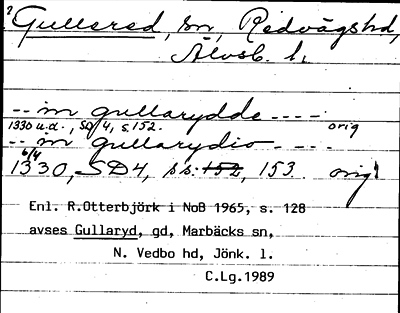 ? Gullered, sn, Redvägshd,
Älvsb. l.
-- in gullarydde ----
1330 u.d., SD 4, s. 152. orig
-- in gullarydio - - - -
6/4
1330, SD 4, ss. 152, 153 orig!
Enl. R.Otterbjörk i NoB 1965, s. 128
avses Gullaryd, gd, Marbäcks sn,
N. Vedbo hd, Jönk. l.
C.Lg.1989